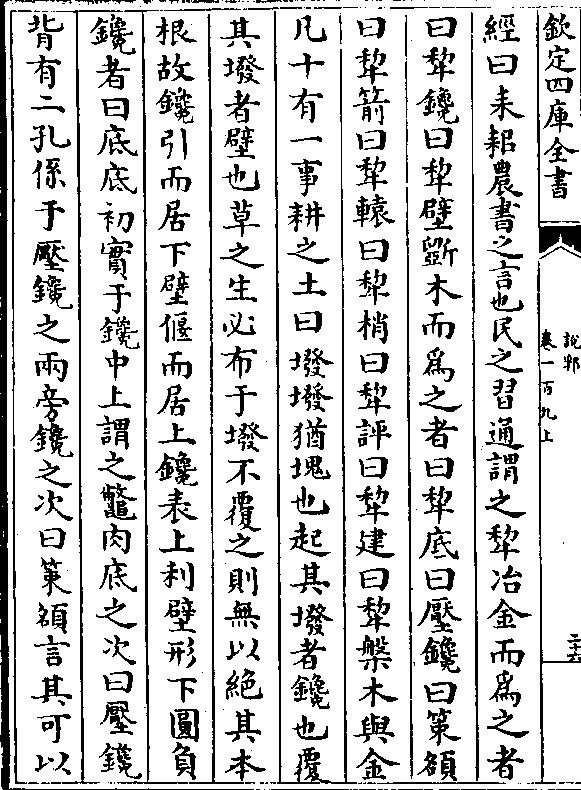 欽定四庫全書
說郛
卷一百九上
二十六
經曰耒耜農書之言也民之習通謂之犂冶金而爲之者
曰犂鑱曰犂壁斵木而爲之者曰犂底曰壓鑱曰策額
曰犂箭曰犂轅曰犂梢曰犂評曰犂建曰犂槃木與金
凡十有一事耕之土曰墢墢猶塊也起其墢者鑱也覆
其墢者壁也草之生必布于墢不覆之則無以絕其本
根故鑱引而居下壁偃而居上鑱表上利壁形下圓負
鑱者曰底底初實于鑱中上謂之鼈肉底之次曰壓鑱
背有二孔係于壓鑱之兩旁鑱之次曰策額言其可以